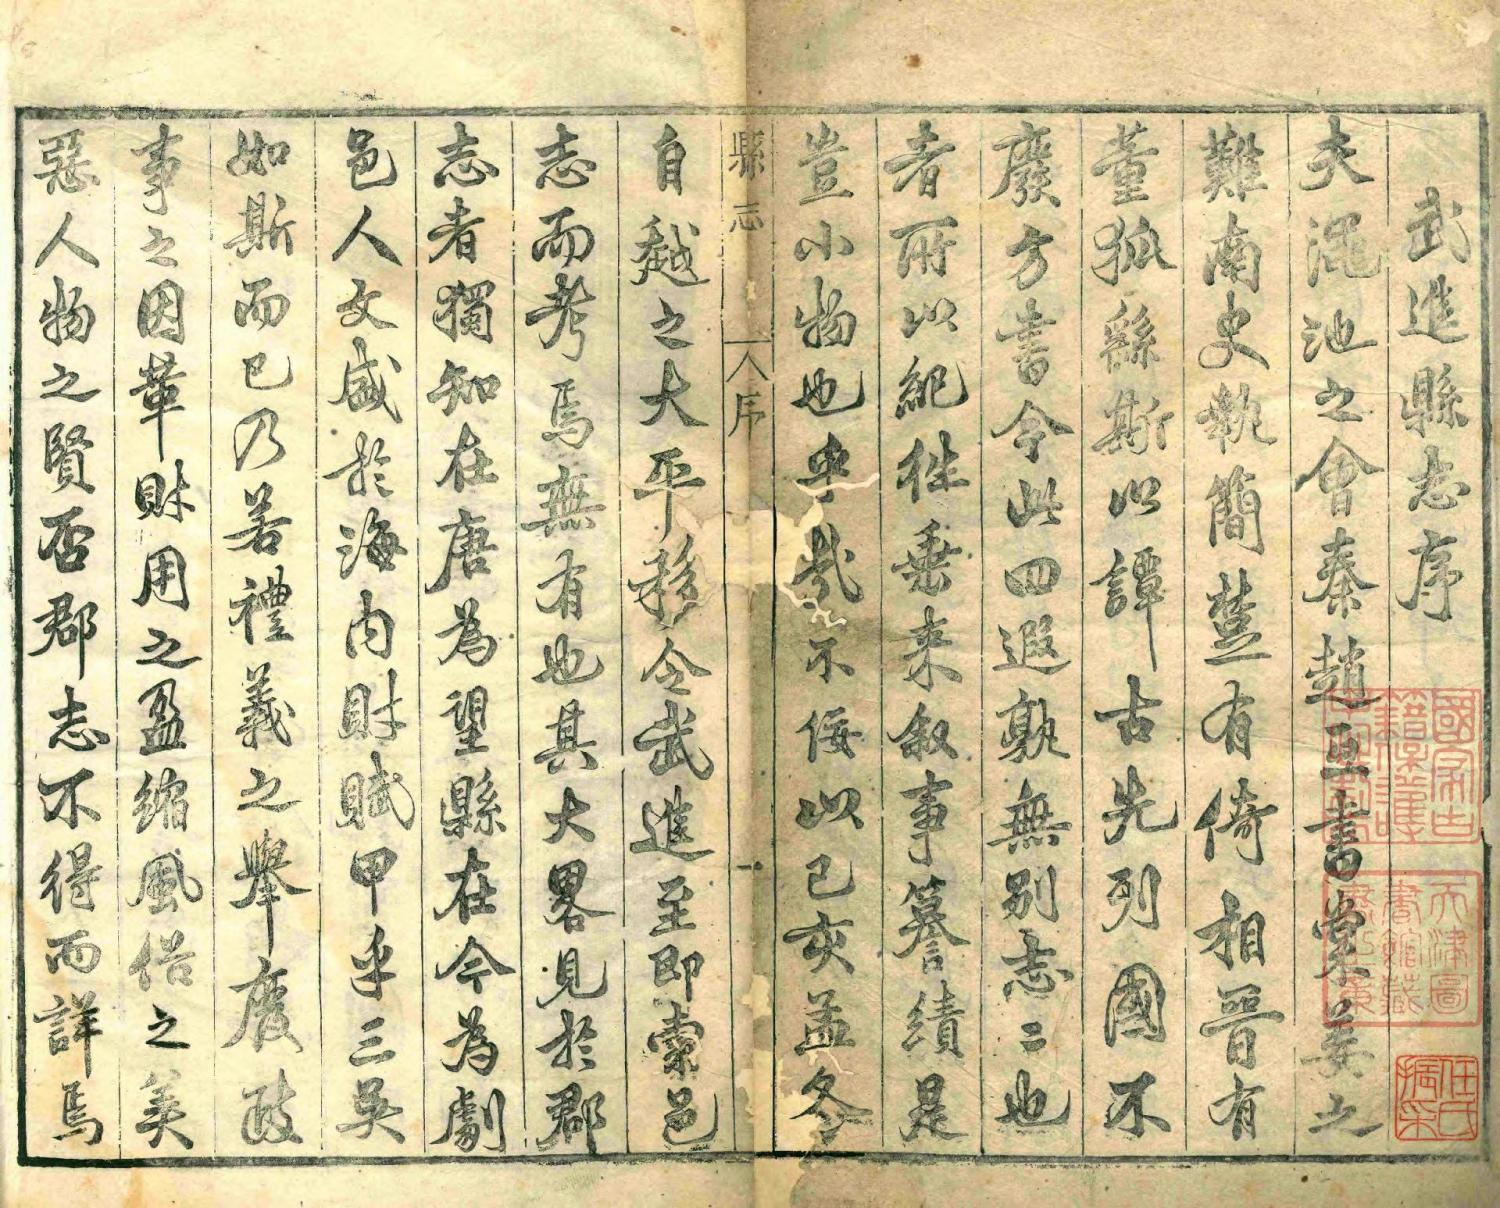 武進縣志序
夫澠池之會秦趙亙書棠姜之
難南史執簡楚有倚相晉有
董狐繇斯以譚古先列國不
廢方書今此四遐孰無別志二也
者所以紀往垂来叙事謩績是
豈小物也乎哉不佞以己亥孟冬
縣志
序
一
自越之太平移令武進至即索邑
志而考焉無有也其大畧見於郡
志者獨知在唐為望縣在今為劇
邑人文盛於海內財賦甲乎三吳
如斯而已乃若禮義之舉廢政
事之因革財用之盈縮風俗之美
惡人物之賢否郡志不得而詳焉
國家古
籍保護
天津圖
書館藏
任氏
振采